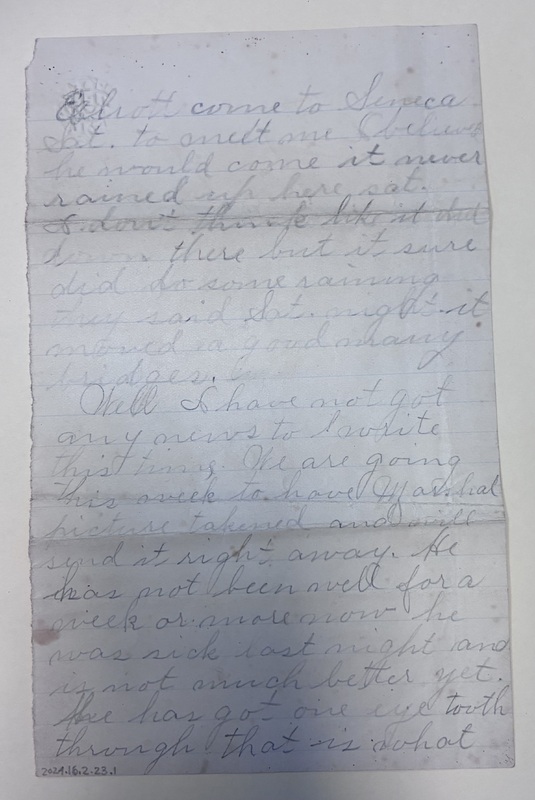 come to Seneca
Sat. to meet me I believe
he would come it never
rained up here sat.
I don't think like it did
down there but it sure
did do some raining
they said Sat. night it
moved a good many
bridges.
Well I have not got
any news to write
this time. We are going
this week to have Marshal
picture takened and will
send it right away. He
has not been well for a
week or more now he
was sick last night and
is not much better yet.
He has got one eye tooth
through that is what
2024.16.2.23.1